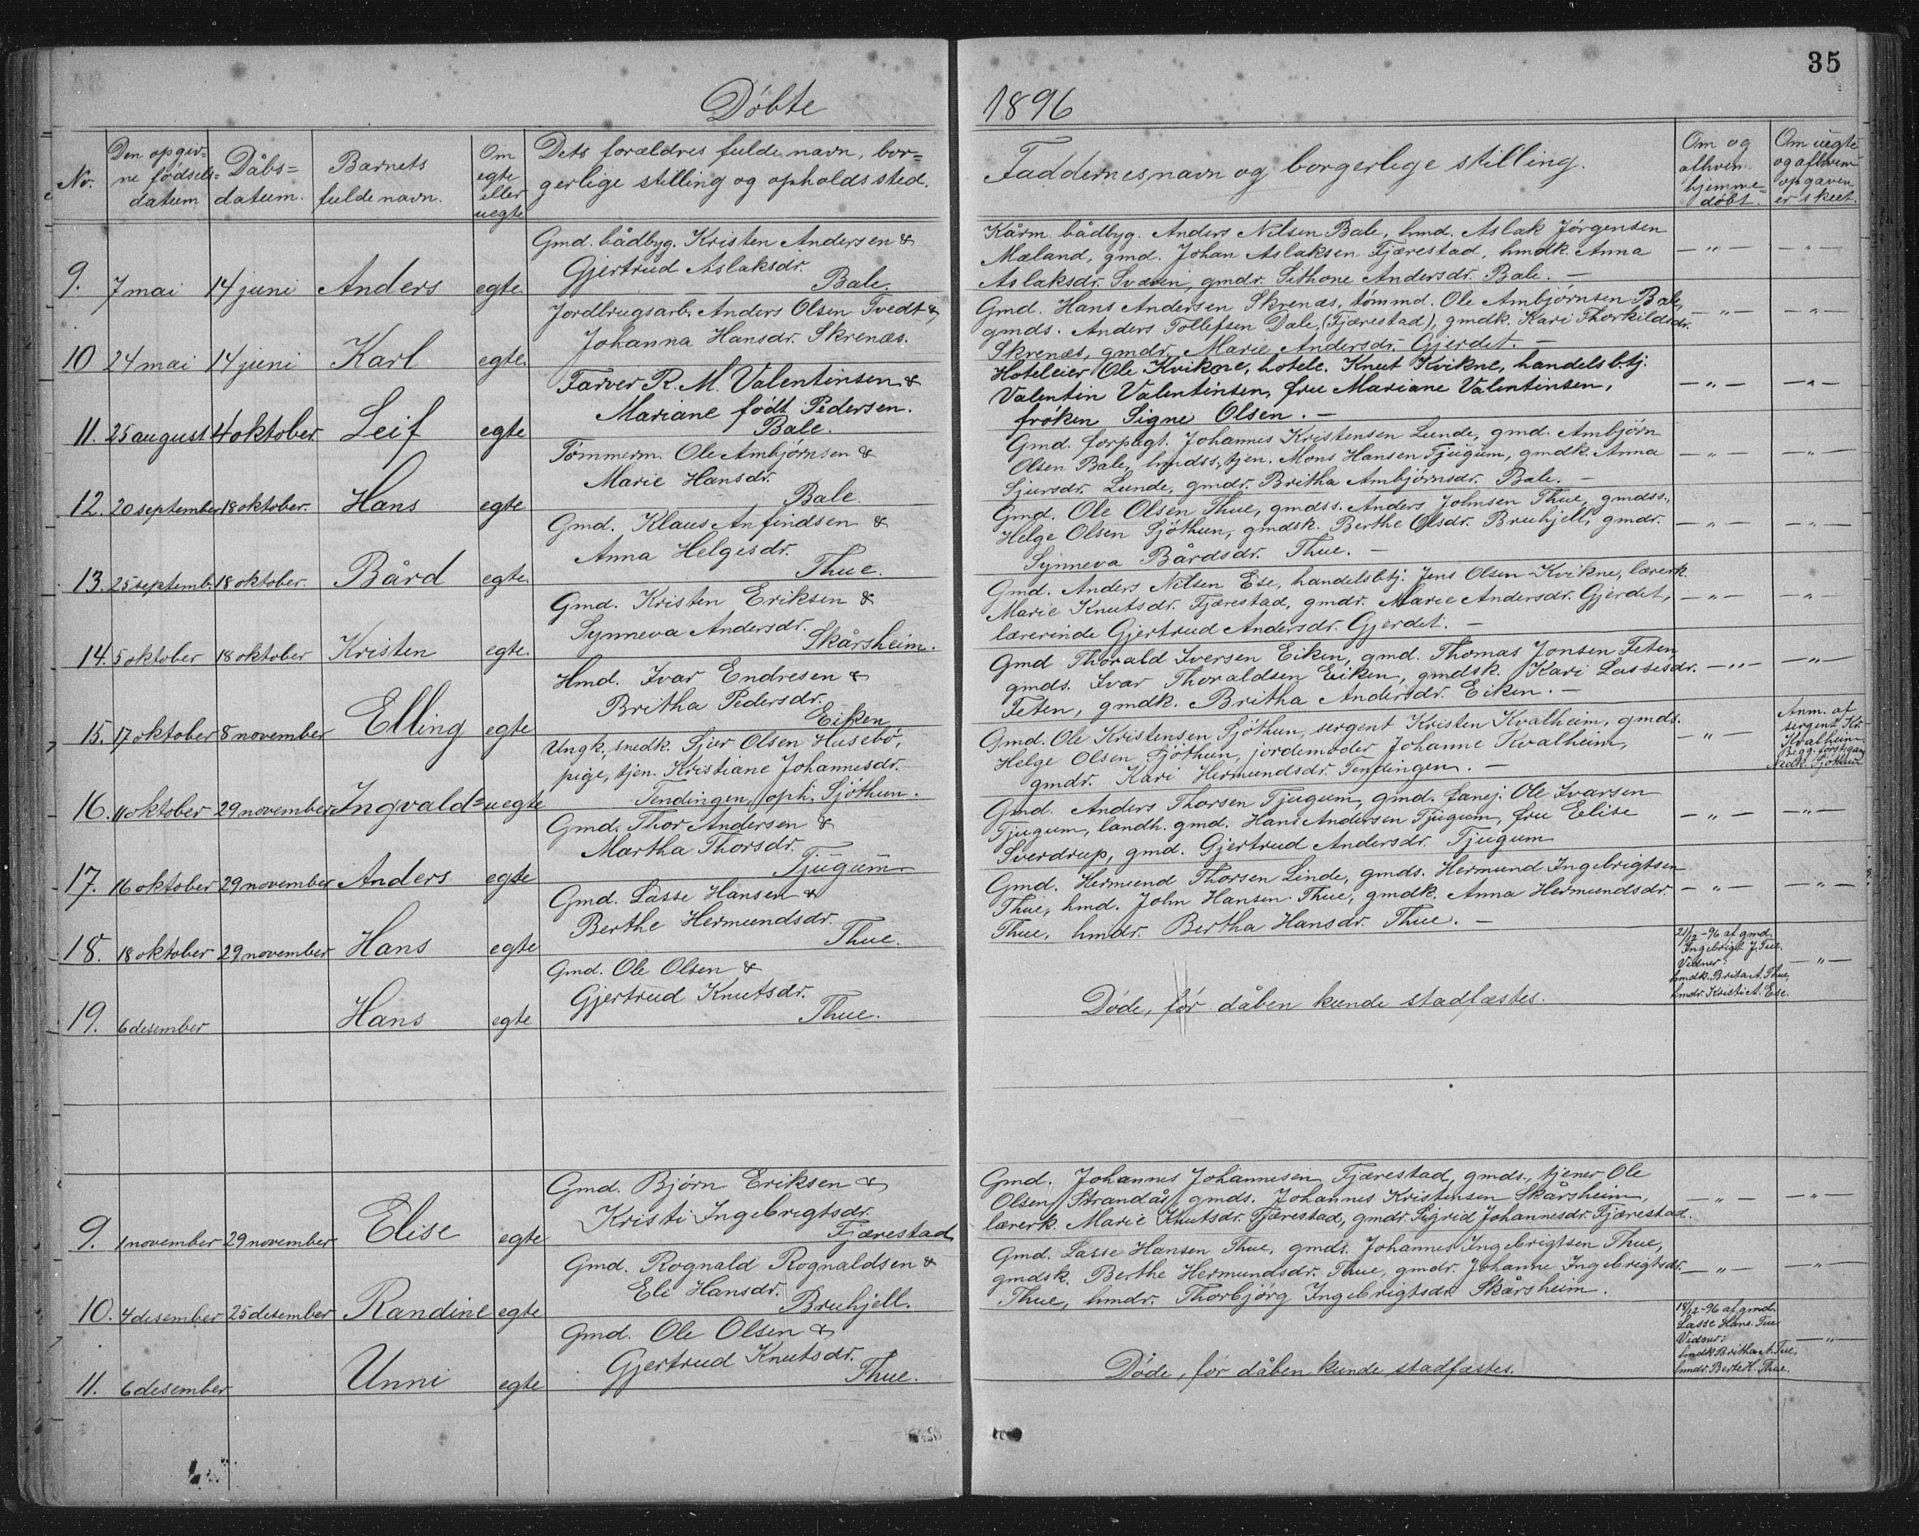 35
Døbte
1896
No.
Den opgiv-
ne fødsels-
datum
Dåbs-
datum.
Barnets
fulde navn.
Om
egte
eller
uegte
Dets forældres fulde navn, bor-
gerlige stilling og opholdssted.
Faddernes navn og borgerlige stilling.
Om og
af hvem
hjemme-
døbt.
Om uegte
og af hvem
opgaven
er skeet.
9. 7 mai 14 juni Anders egte.
Gmd. bådbyg. Kristen Andersen &
Gjertrud Aslaksdr.
Bale.
Kårm. bådbyg. Anders Nilsen Bale, hmd. Aslak Jørgensen
Mæland, gmd. Johan Aslaksen Fjærestad, hmdk. Anna
Aslaksdr. Sværin, gmdr. Sithone Andersdr. Bale. —
— „ — — „ —
10 24 mai 14 juni Karl egte.
Jordbrugsarb. Anders Olsen Tvedt &
Johanna Hansdr. Skrenæs.
Gmd. Hans Andersen Skrenæs, tømmd. Ole Ambjørnsen Bale,
gmds. Anders Tollefsen Dale, (Fjærestad), gmdk. Kari Thorkildsdr.
Skrenæs, gmdr. Marie Andersdr. Gjerdet. —
— „ — — „ —
11. 25 august 4 oktober Leif egte
Farver R. M. Valentinsen &
Mariane født Pedersen.
Bale.
Hoteleier Ole Kvikne, hotele. Knut Kvikne, handelsbtj.
Valentin Valentinsen, frue Mariane Valentinsen,
frøken Signe Olsen. —
— „ — — „ —
12. 20 september 18 oktober. Hans egte
Tømmerm. Ole Ambjørnsen &
Marie Hansdr.
Bale.
Gmd. forpagt. Johannes Kristensen Lunde, gmd. Ambjørn
Olsen Bale, hmdss, tjen. Mons Hansen Tjugum, gmdk. Anna
Sjursdr. Lunde, gmdr. Britha Ambjørnsdr. Bale. —
— „ — — „ —
13. 25 septemb. 18 oktober. Bård egte.
Gmd. Klaus Anfindsen &
Anna Helgesdr.
Thue.
Gmd. Ole Olsen Thue, gmdss. Anders Johnsen Thue, gmdss.
Helge Olsen Sjøthun, gmdsk. Berthe Olsdr. Bruhjell, gmdr.
Synneva Bårdsdr. Thue. —
— „ — — „ —
14. 5 oktober 18 oktober Kristen egte.
Gmd. Kristen Eriksen &
Synneva Andersdr.
Skårsheim.
Gmd. Anders Nilsen Ese, handelsbtj. Jens Olsen Kvikne, lærerk.
Marie Knutsdr. Fjærestad, gmdr. Marie Andersdr. Gjerdet,
lærerinde Gjertrud Andersdr. Gjerdet. —
— „ — — „ —
15. 17 oktober 8 november Elling egte
Hmd. Ivar Endresen &
Britha Pedersdr.
Eiken
Gmd Thorald Iversen Eiken, gmd. Thomas Jonsen Feten
gmds. Ivar Thoraldsen Eiken, gmdsk. Kari Lassesdr.
Feten, gmdk. Britha Andersdr. Eiken. —
— „ — — „ —
16. 11 oktober 29 november Ingvald= uegte
Ungk., snedk. Sjur Olsen Husebø,
pige, tjen. Kristiane Johannesdr.
Tendingen, oph. Sjøthun.
Gmd. Ole Kristensen Sjøthun, sergent Kristen Kvalheim, gmds.
Helge Olsen Sjøthun, jordemoder Johanne Kvalheim,
gmdr. Kari Hermundsdr. Tendingen. —
— „ —
Anm. af
sergent Kr.
Kvalheim.
Begg. förstgan
Sjøthun
17. 16 oktober 29 november Anders egte
Gmd. Thor Andersen &
Martha Thorsdr.
Tjugum
Gmd. Anders Thorsen Tjugum, gmd. fanej. Ole Ivarsen
Tjugum, landh. gmd. Hans Andersen Tjugum, fru Elise
Sverdrup, gmd. Gjertrud Andersdr. Tjugum
— „ — — „ —
18. 18 oktober 29 november Hans egte
Gmd. Lasse Hansen &
Berthe Hermundsdr.
Thue.
Gmd. Hermund Thorsen Linde, gmds. Hermund Ingebrigtsen
Thue, hmd. John Hansen Thue, gmdk. Anna Hermundsdr.
Thue, hmdr. Bertha Hansdr. Thue. —
— „ — — „ —
19. 6 desember Hans egte
Gmd. Ole Olsen &
Gjertrud Knutsdr.
Thue.
Døde, før dåben kunde stadfæstes.
21/12-96 af gmd.
Ingebrigt J. Tue.
Vidner:
hmdk. Brita A. Thue,
hmdr. Kristi A. Ese.
— „ —
9. 1 november 29 november Elise egte
Gmd. Bjørn Eriksen &
Kristi Ingebrigtsdr.
Fjærestad
Gmd. Johannes Johannesen Fjærestad, gmds., tjener Ole
Olsen Strandås, gmds. Johannes Kristensen Skårsheim,
lærerk. Marie Knutsdr. Fjærestad, gmdr Sigrid Johannesdr. Fjærestad.
— „ — — „ —
10. 4 desember 25 desember Randine egte
Gmd. Rognald Rognaldsen &
Eli Hansdr.
Bruhjell.
Gmd. Lasse Hansen Thue, gmds. Johannes Ingebrigtsen Thue,
gmdsk. Berthe Hermundsdr. Thue, gmdr. Johanne Ingebrigtsdr.
Thue, hmdr. Thorbjørg Ingebrigtsdr. Skårsheim.
— „ — — „ —
11. 6 desember Unni egte
Gmd. Ole Olsen &
Gjertrud Knutsdr.
Thue.
Døde, før dåben kunde stadfæstes.
18/12-96 af gmd.
Lasse Hans. Tue
Vidner:
hmdk Britha A. Tue,
hmdr. Berte H. Thue.
— „ —